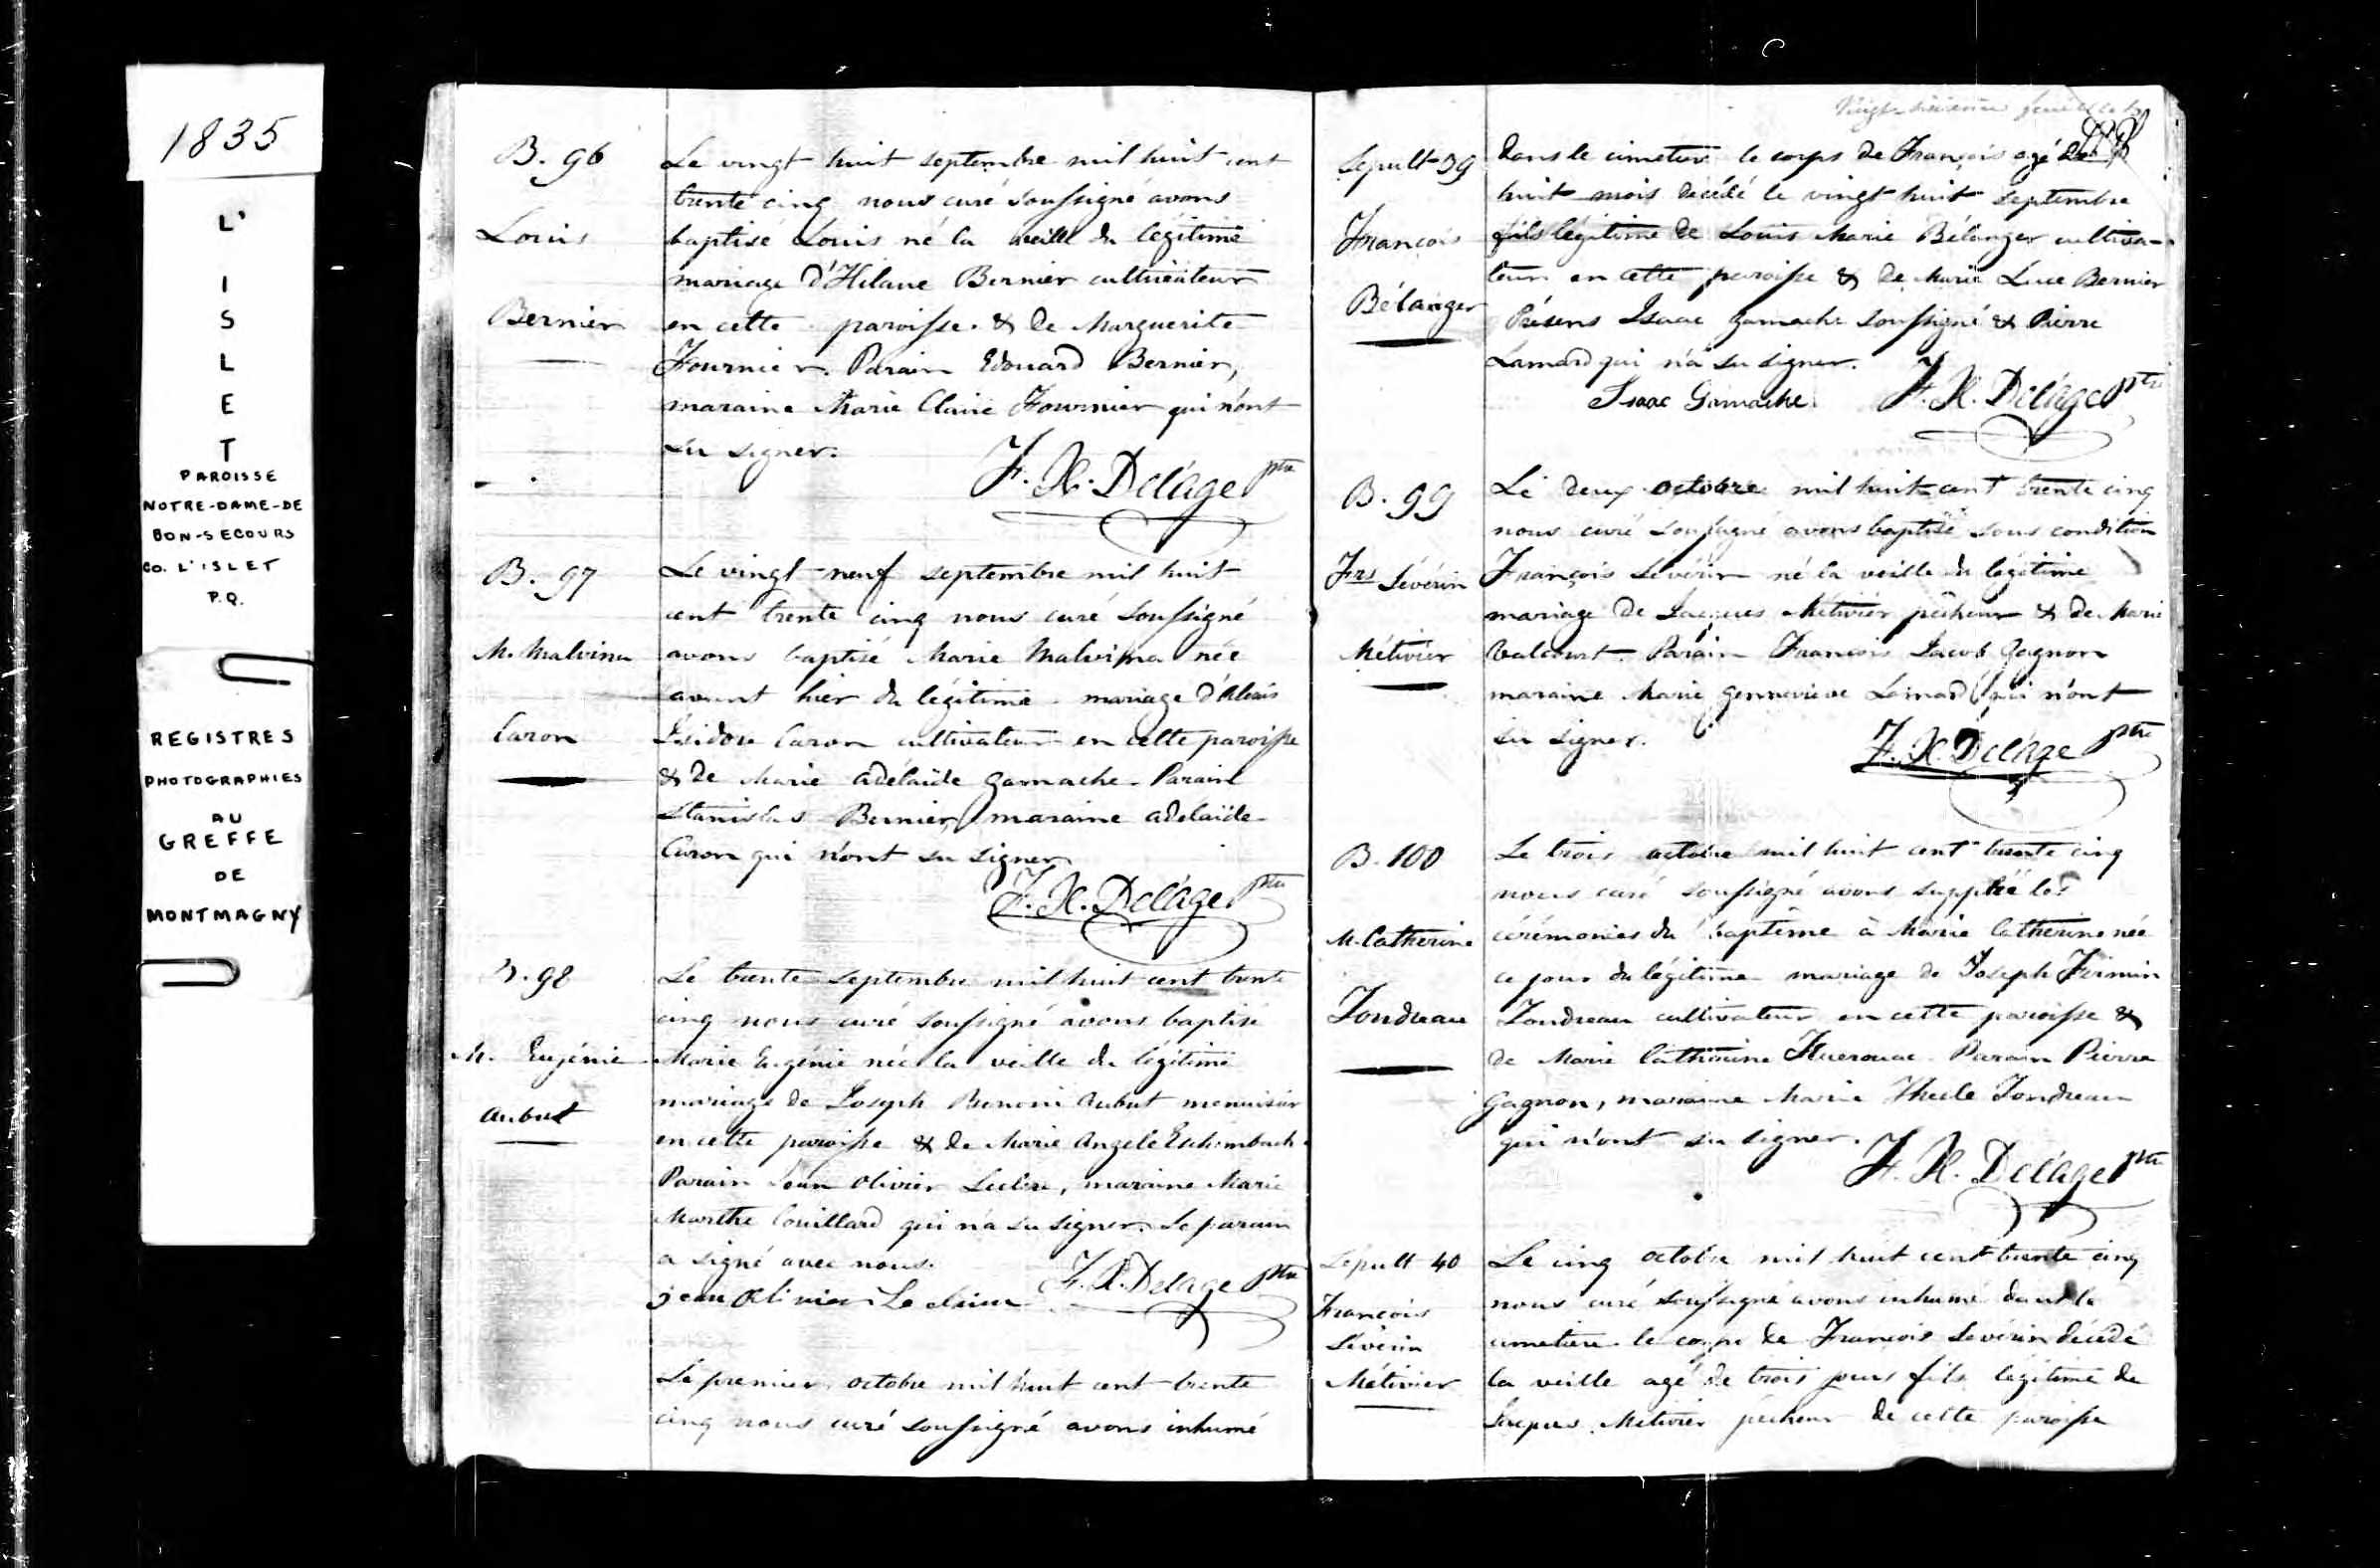 1835
L'
I
S
L
E
T
PAROISSE
NOTRE-DAME-DE
BON-SECOURS
CO. L'ISLET
P.Q.
REGISTRES
PHOTOGRAPHIES
AU
GREFFE
DE
MONTMAGNY
B. 96
Louis
Bernier
Le vingt huit septembre mil huit cent
trente cinq nous curé soussigné avons
baptisé Louis né la veille du légitime
mariage d'Hilaire Bernier cultivateur
en cette paroisse & de Marguerite
Fournier. Parain Edouard Bernier,
maraine Marie Claire Fournier qui n'ont
su signer.
F. X. Delâge ptre
B. 97
M. Malvina
Caron
Le vingt neuf septembre mil huit
cent trente cinq nous curé soussigné
avons baptisé Marie Malvina née
avant hier du légitime mariage d'Alexis
Isidore Caron cultivateur en cette paroisse
& de Marie adélaïde Gamache. Parain
Stanislas Bernier, maraine adelaïde
Caron qui n'ont su signer
F. X. Delâge ptre
B. 98
M. Eugénie
aubut
Le trente septembre mil huit cent trente
cinq nous curé soussigné avons baptisé
Marie Eugénie née la veille du légitime
mariage de Joseph Benoni Aubut menuisier
en cette paroisse & de Marie Angele Eschembach.
Parain Jean Olivier Leclerc, maraine Marie
Marthe Couillard qui n'a su signer. Le parain
a signé avec nous.
F. X. Delage ptre
jean Olivier Leclair
Le premier octobre mil huit cent trente
cinq nous curé soussigné avons inhumé
feuillet
Sepult 39
François
Bélanger
dans le cimetière le corps de François agé de
huit mois décédé le vingt huit septembre
fils légitime de Louis Marie Bélanger cultiva-
teur en cette paroisse & de Marie Luce Bernier
Présens Isaac Gamache soussigné & Pierre
Lamard qui n'a su signer.
Isaac Gamache
F. X. Delâge ptre
B. 99
Frs Sévérin
Métivier
Le deux octobre mil huit cent trente cinq
nous curé soussigné avons baptisé sous condition
François Sévérin né la veille du légitime
mariage de Jacques Métivier pêcheur & de Marie
Valcourt. Parain François Jacob Gagnon
maraine Marie Genneviève Lamard qui n'ont
su signer.
F. X. Delâge ptre
B. 100
M. Catherine
Tondreau
Le trois octobre mil huit cent trente cinq
nous curé soussigné avons suppléé les
cérémonies du baptême à Marie Catherine née
ce jour du légitime mariage de Joseph Firmin
Tondreau cultivateur en cette paroisse &
de Marie Catherine Kuerouac. Parain Pierre
Gagnon, maraine Marie Thecle Tondreau
qui n'ont su signer.
F. X. Delâge ptre
Sepult 40
François
Sévérin
Métivier
Le cinq octobre mil huit cent trente cinq
nous curé soussigné avons inhumé dans le
cimetière le corps de François Sévérin décédé
la veille agé de trois jours fils légitime de
Jacques Métivier pêcheur de cette paroisse